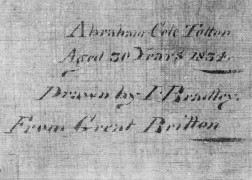 Abraham Cole Totten
Aged 30 Years 1834.
Drawn by I. Bradley.
From Great Britton